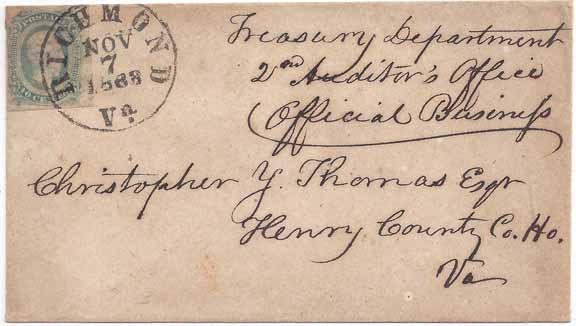 POSTAGE
RICHMOND
NOV
7
1863
Va.
Treasury Department
2nd Auditor's Office
Official Business
Christopher Y. Thomas Esqr
Henry County Co. Ho.
Va